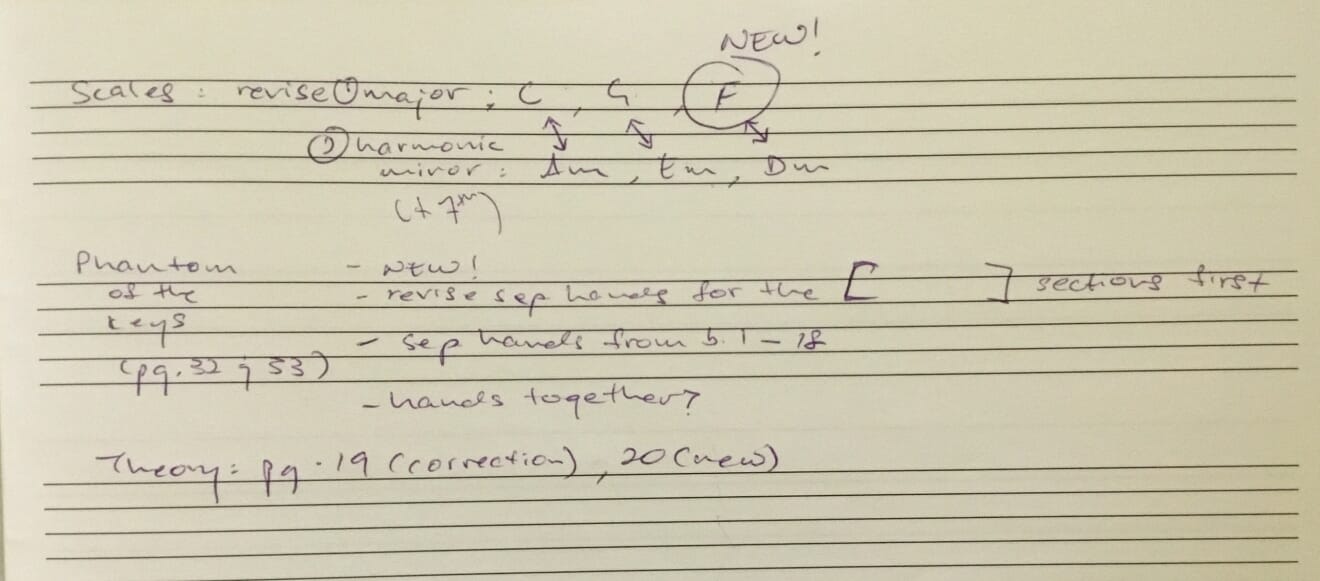 NEW!
Scales : revise ① major : C , G , F
② harmonic
minor : Am , Em , Dm
(+ 7th)
Phantom - NEW!
of the - revise sep hands for the [ ] sections first
keys
- sep hands from b. 1 - 18
(pg. 32 & 33)
- hands together?
Theory : pg. 19 (correction), 20 (new)